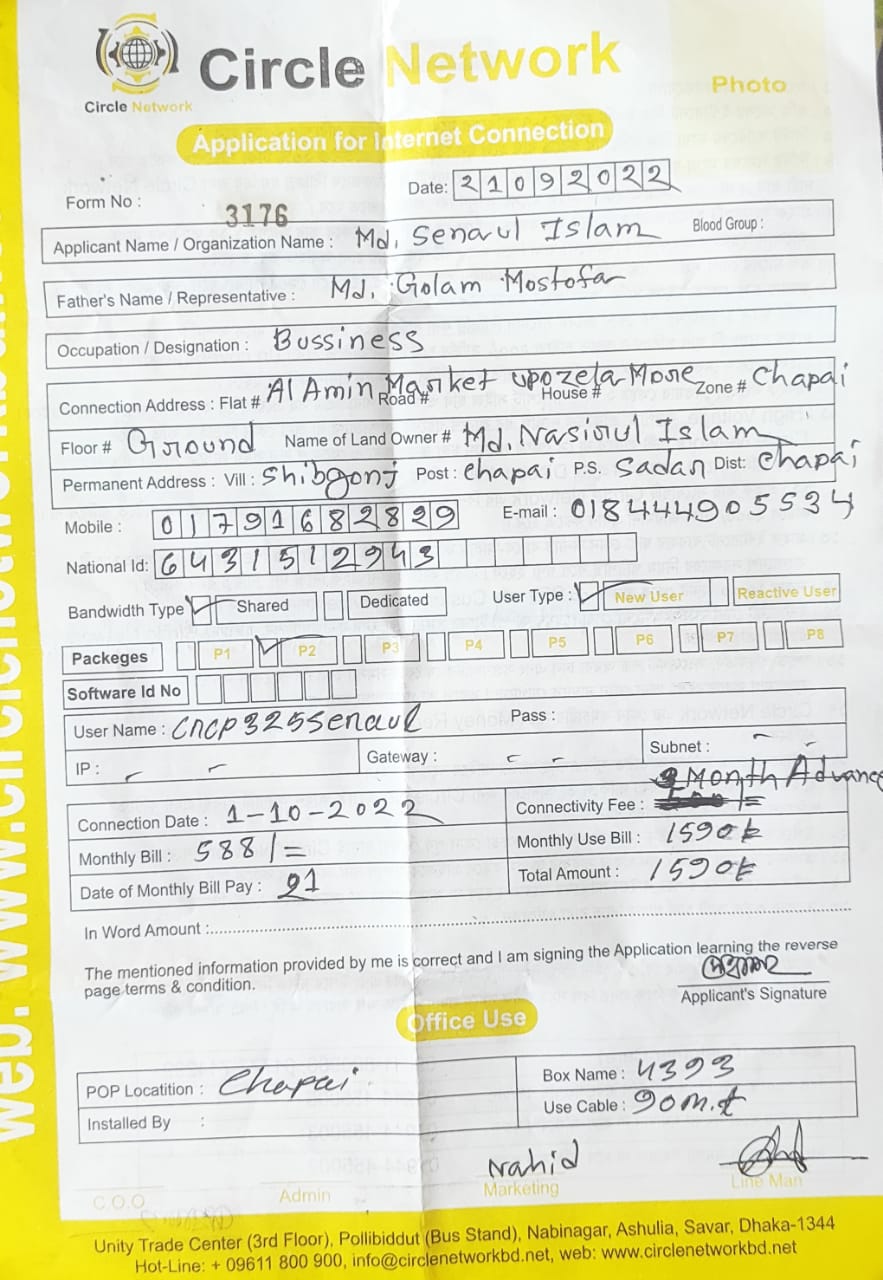 Circle Network
Circle Network
Photo
Application for Internet Connection
Form No : 3176
Date: 21092022
Applicant Name / Organization Name : Md. Senarul Islam Blood Group :
Father's Name / Representative : Md. Golam Mostofa
Occupation / Designation : Bussiness
Connection Address : Flat # Al Amin Market Road # upozela More House # Zone # Chapai
Floor # Ground Name of Land Owner # Md. Nasirul Islam
Permanent Address : Vill : Shibgonj Post : Chapai P.S. Sadar Dist: Chapai
Mobile : 01791682829 E-mail : 018444905534
National Id: 6431512943
Bandwidth Type Shared Dedicated User Type : New User Reactive User
Packeges P1 P2 P3 P4 P5 P6 P7 P8
Software Id No
User Name : CnCP325Senaul Pass :
IP : - - Gateway : - - Subnet : - -
2 Month Advance
Connection Date : 1-10-2022 Connectivity Fee : /=
Monthly Bill : 588/= Monthly Use Bill : 1590tk
Date of Monthly Bill Pay : 21 Total Amount : 1590tk
In Word Amount :
The mentioned information provided by me is correct and I am signing the Application learning the reverse
page terms & condition.
Applicant's Signature
Office Use
POP Locatition : Chapai Box Name : 4393
Installed By : Use Cable : 90m.t
Nahid
C.O.O Admin Marketing Line Man
Unity Trade Center (3rd Floor), Pollibiddut (Bus Stand), Nabinagar, Ashulia, Savar, Dhaka-1344
Hot-Line: + 09611 800 900, info@circlenetworkbd.net, web: www.circlenetworkbd.net